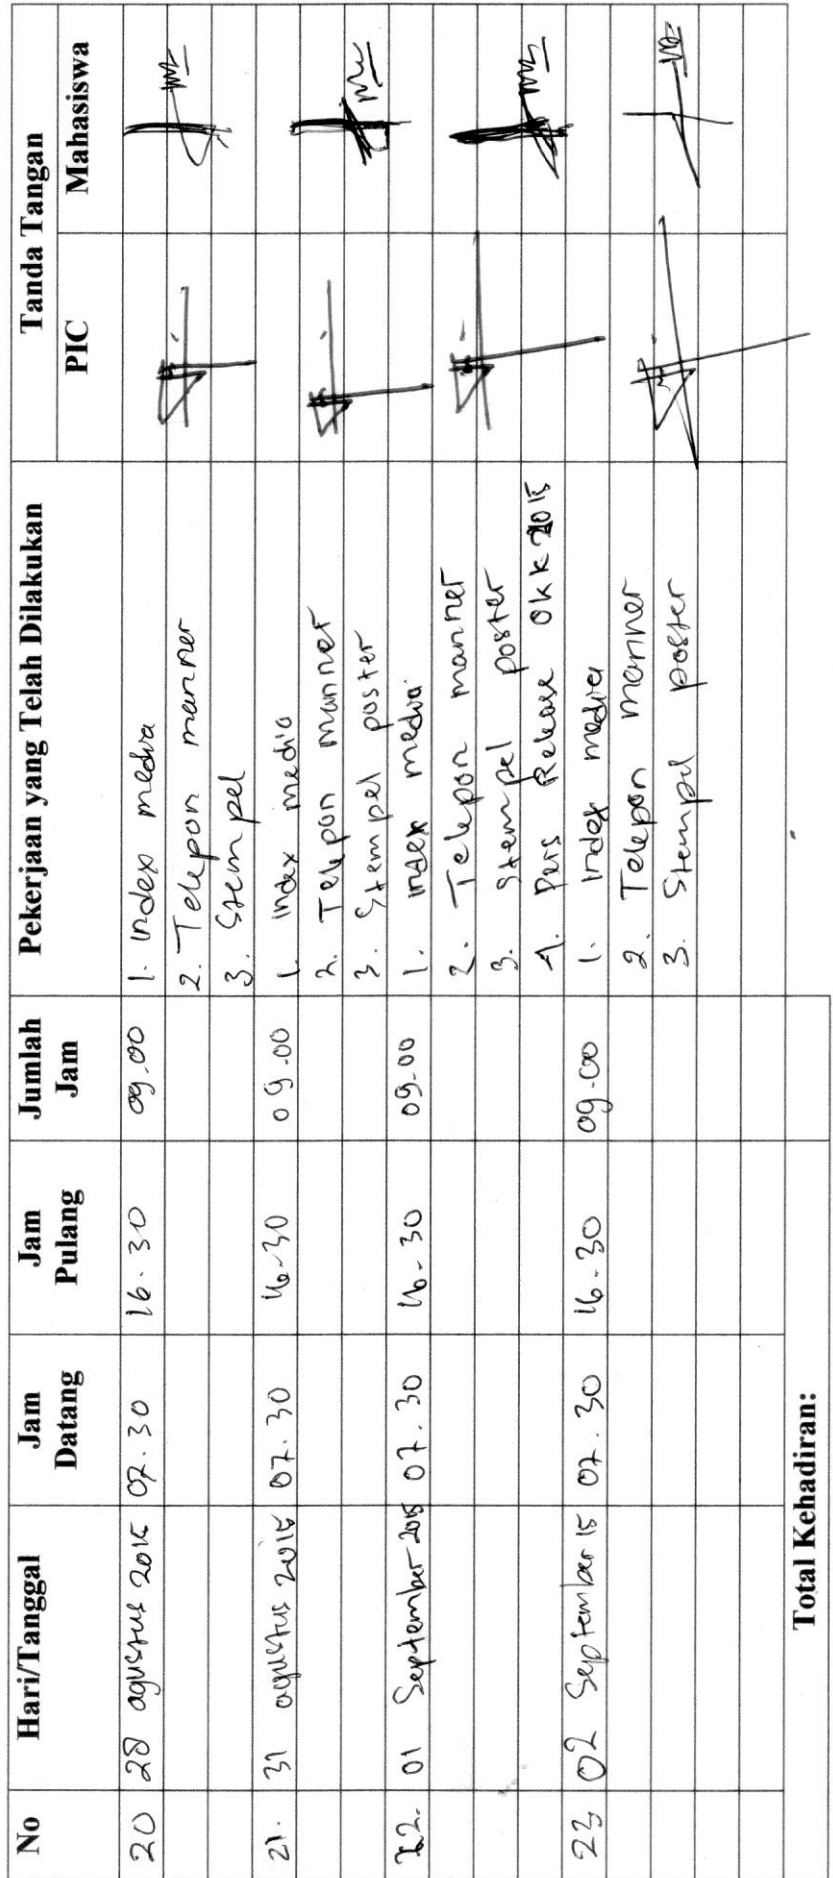 No Hari/Tanggal Jam Datang Jam Pulang Jumlah Jam Pekerjaan yang Telah Dilakukan Tanda Tangan
PIC Mahasiswa
20 28 agustus 2015 07.30 16.30 09.00 1. index media
2. Telepon manner
3. Stempel
21. 31 agustus 2015 07.30 16.30 09.00 1. index media
2. Telepon manner
3. Stempel poster
22. 01 September 2015 07.30 16.30 09.00 1. index media
2. Telepon manner
3. Stempel poster
4. Pers Release OKK 2015
23 02 September 15 07.30 16.30 09.00 1. index media
2. Telepon manner
3. Stempel poster
Total Kehadiran: